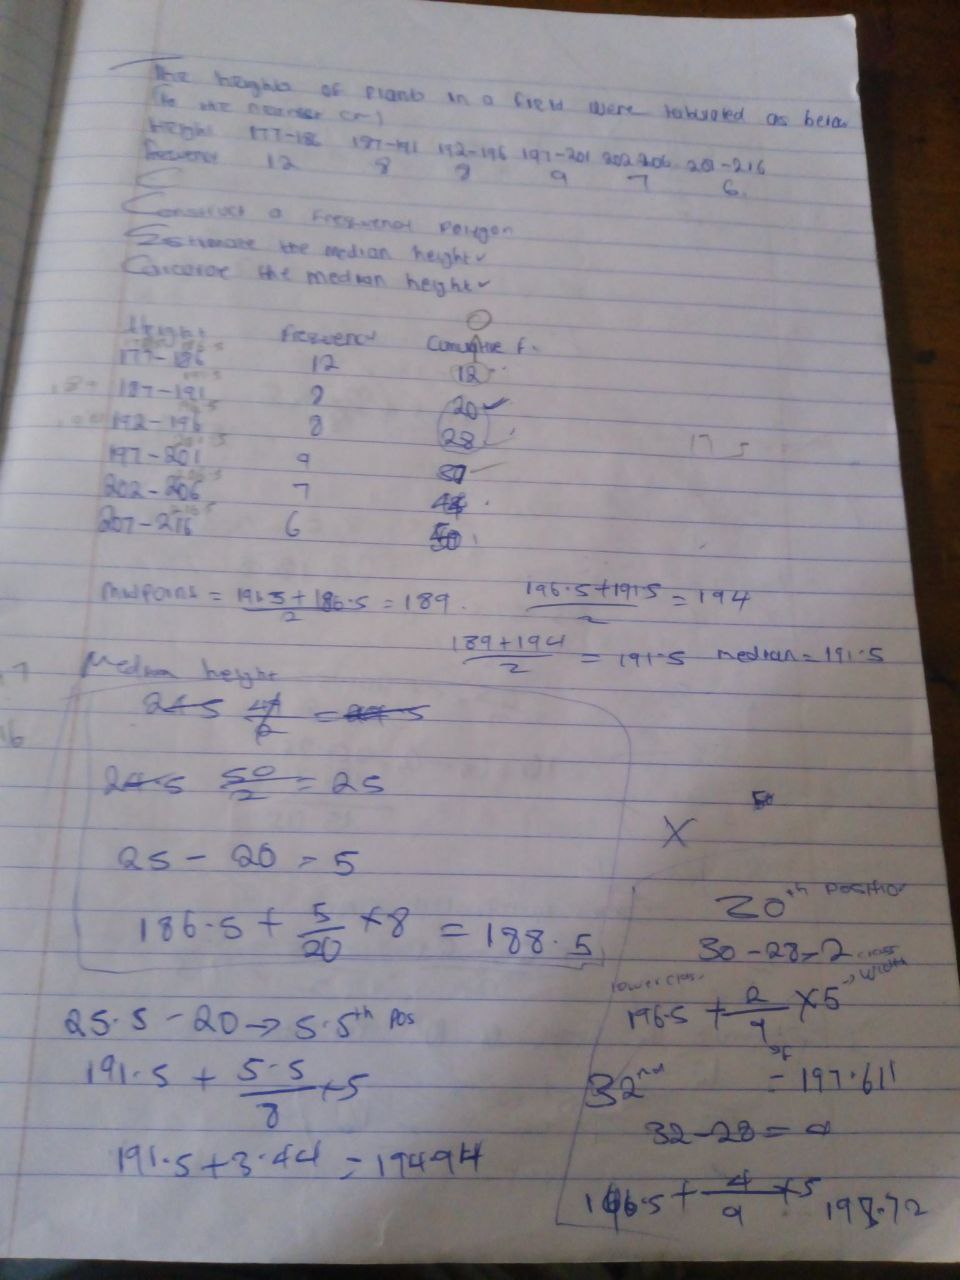 The heights of plants in a field were tabulated as below
(To the nearest cm)
Height 177-186 187-191 192-196 197-201 202-206 207-216
Frequency 12 8 8 9 7 6.
Construct a Frequency Polygon
Estimate the median height ✓
Calculate the median height ✓
Height Frequency Cumulative F.
177-186 12 12
187-191 8 20 ✓
192-196 8 28
197-201 9 37
202-206 7 44
207-216 6 50
17 5
Midpoints = 191.5 + 186.5 / 2 = 189. 196.5 + 191.5 / 2 = 194
189 + 194 / 2 = 191.5 median = 191.5
Median height
24.5 = 24.5
24.5 50/2 = 25
25 - 20 = 5
186.5 + 5/20 × 8 = 188.5
X
30th position
30 - 28 = 2
lower class. 196.5 + 2/9 × 5 → class width
→ f
= 197.611
25.5 - 20 → 5.5th pos
191.5 + 5.5/8 × 5
191.5 + 3.44 = 194.94
32nd
32 - 28 = 4
196.5 + 4/9 × 5 198.72